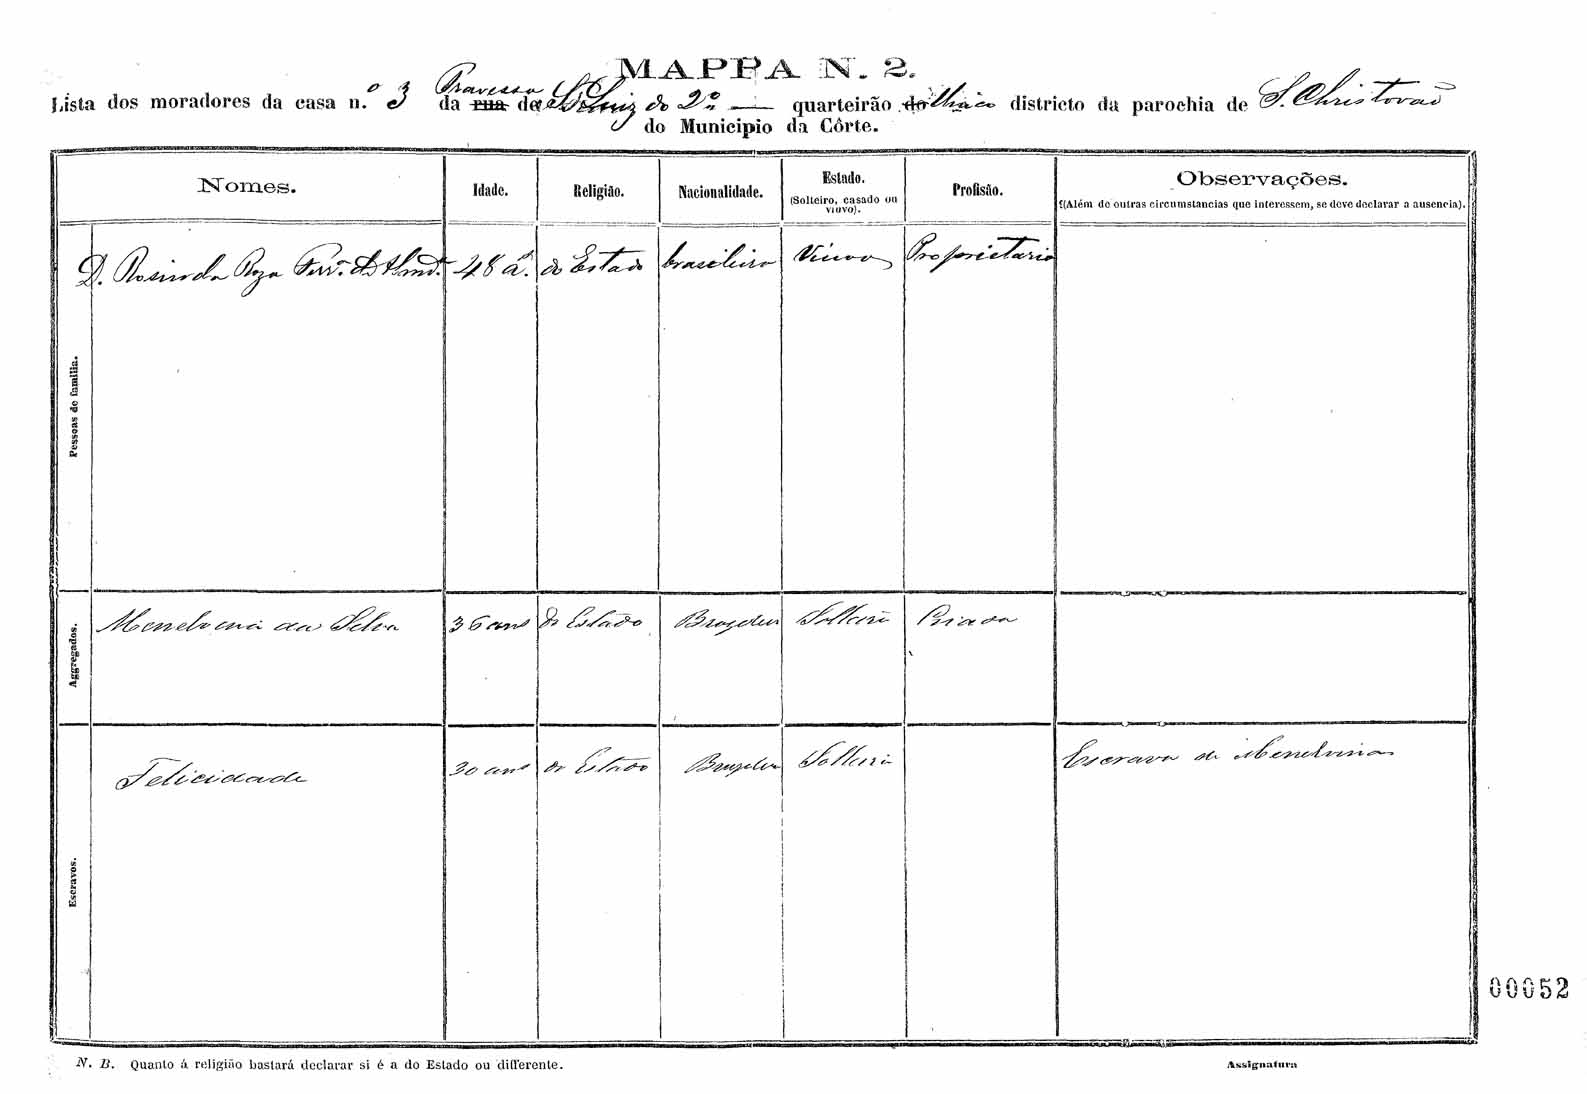 MAPPA N. 2.
Lista dos moradores da casa n.º 3 da Travessa rua de S. Luiz do 2º quarteirão do unico districto da parochia de S. Christovão
do Municipio da Côrte.
Nomes. Idade. Religião. Nacionalidade. Estado. Profisão. Observações.
(Solteiro, casado ou viuvo). (Além de outras circumstancias que interessem, se deve declarar a ausencia).
Pessoas de familia.
D. Rosinda Roza 48 a.s do Estado brasileira Viuva Proprietaria
Aggregados.
da Silva 36 ans do Estado Solteira Criada
Escravos.
Felicidade 30 ans do Estado Solteira Escrava de
00052
N. B. Quanto á religião bastará declarar si é a do Estado ou differente. Assignatura